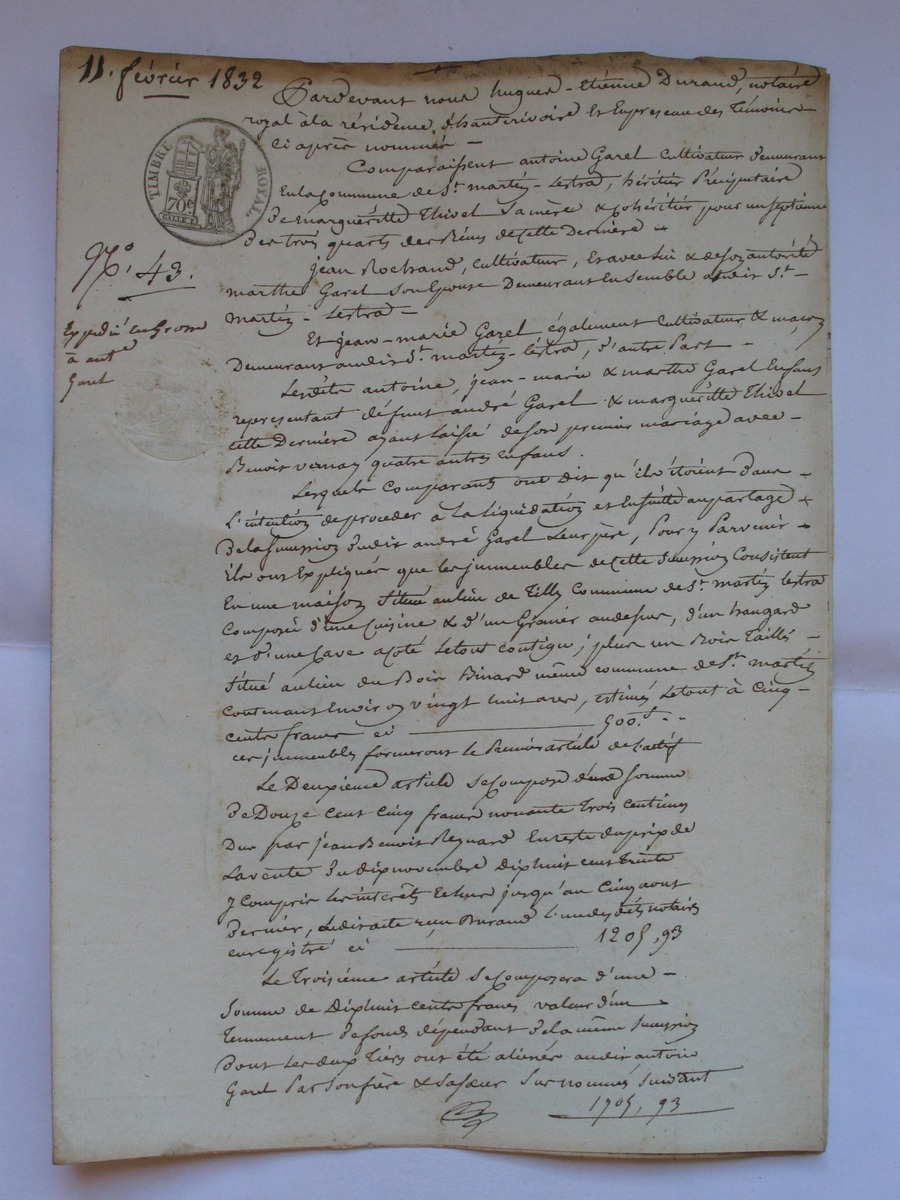 11. février 1832
Pardevant nous hugues-étienne Durand, notaire
royal à la résidence d'hauterivoire et en presence des témoins
ci après nommés -
TIMBRE ROYAL
70c
Comparaissent antoine Garel cultivateur demeurant
en la commune de St. martin-lestra, héritier Préciputaire
de marguéritte Thivel sa mère & cohéritier pour un septième
des trois quarts des Biens de cette Dernière -
N.o 43.
jean Rochand, cultivateur, et avec lui & de son autorité
marthe Garel son Epouse Demeurant Ensemble audit St.
martin-lestra -
Expedié en Grosse
à ant.e
Garel
Et jean-marie Garel également cultivateur & maçon
Demeurant audit St. martin-lestra, d'autre Part -
Lesdits antoine, jean-marie & marthe Garel Enfans
représentant défunt andré Garel & marguéritte Thivel
cette Dernière ayant laissé de son premier mariage avec -
Benoit vernay quatre autres enfans.
Lesquels comparants ont dit qu'ils étoient dans -
L'intention de proceder à la liquidation et Ensuite au partage
De la succession dudit andré Garel Leur père, Pour y Parvenir -
ils ont Expliqués que les immeubles de cette succession Consistent
En une maison située au lieu de Tilly Commune de St. martin lestra
composé d'une cuisine & d'un Grenier au dessus, d'un hangard
et d'une cave a coté le tout contigu; plus un Bois Taillis -
situé au lieu du Bois Binard même commune de St. martin
contenant Environ vingt huit ares, estimés le tout à cinq -
cents francs ci 500.f
ces immeubles formeront le Premier article de l'actif
Le Deuxième article se compose d'une somme
de Douze cent cinq francs nonante trois centimes
Due par jean Benoit En reste du prix de
La vente du dix novembre dix huit cent trente
y compris les intérêts Echus jusqu'au cinq aout
dernier, ledit acte reçu Durand l'un des dits notaires
enregistré ci 1205,93
Le Troisième article se composera d'une -
somme de Dix huit cents francs valeur d'un
Tennement de fonds dépendant de la même succession
Dont les deux tiers ont été alienés audit antoine
Garel Par son frère & sa sœur sus nommés suivant
1705,93